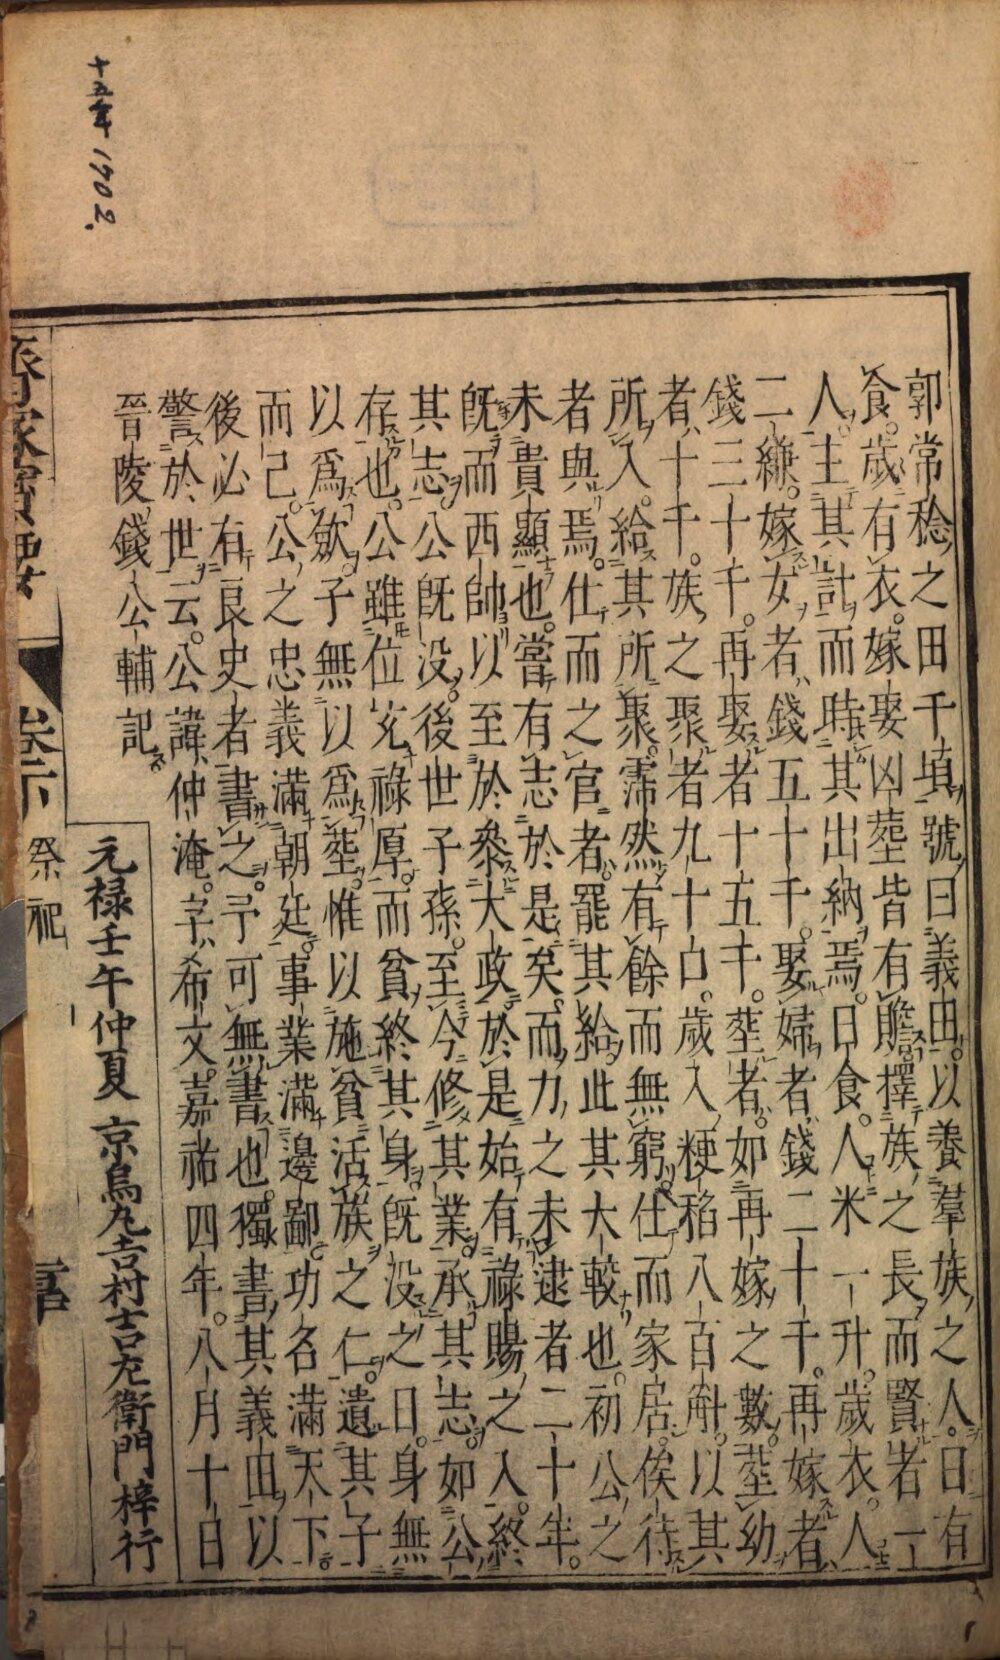 十五年 1702.
郭常稔之田千頃號曰義田以養羣族之人日有
食歲有衣嫁娶凶塟皆有贍擇族之長而賢者一
人主其計而時其出納焉日食人米一升歲衣人
二縑嫁女者錢五十千娶婦者錢二十千再嫁者
錢三十千再娶者十五千塟者如再嫁之數塟幼
者十千族之聚者九十口歲入粳稻八百斛以其
所入給其所聚霈然有餘而無窮仕而家居俟待
者與焉仕而之官者罷其給此其大較也初公之
未貴顯也嘗有志於是矣而力之未逮者二十年
既而西帥以至於參大政於是始有祿賜之入終
其志公既没後世子孫至今修其業承其志如公
存也公雖位充祿厚而貧終其身既没之日身無
以爲斂子無以爲塟惟以施貧活族之仁遺其子
而已公之忠義滿朝廷事業滿邊鄙功名滿天下
後必有良史者書之予可無書也獨書其義田以
警於世云公諱仲淹字希文嘉祐四年八月十日
晉陵錢公輔記
元禄壬午仲夏 京烏丸吉村吉左衛門梓行
祭祀